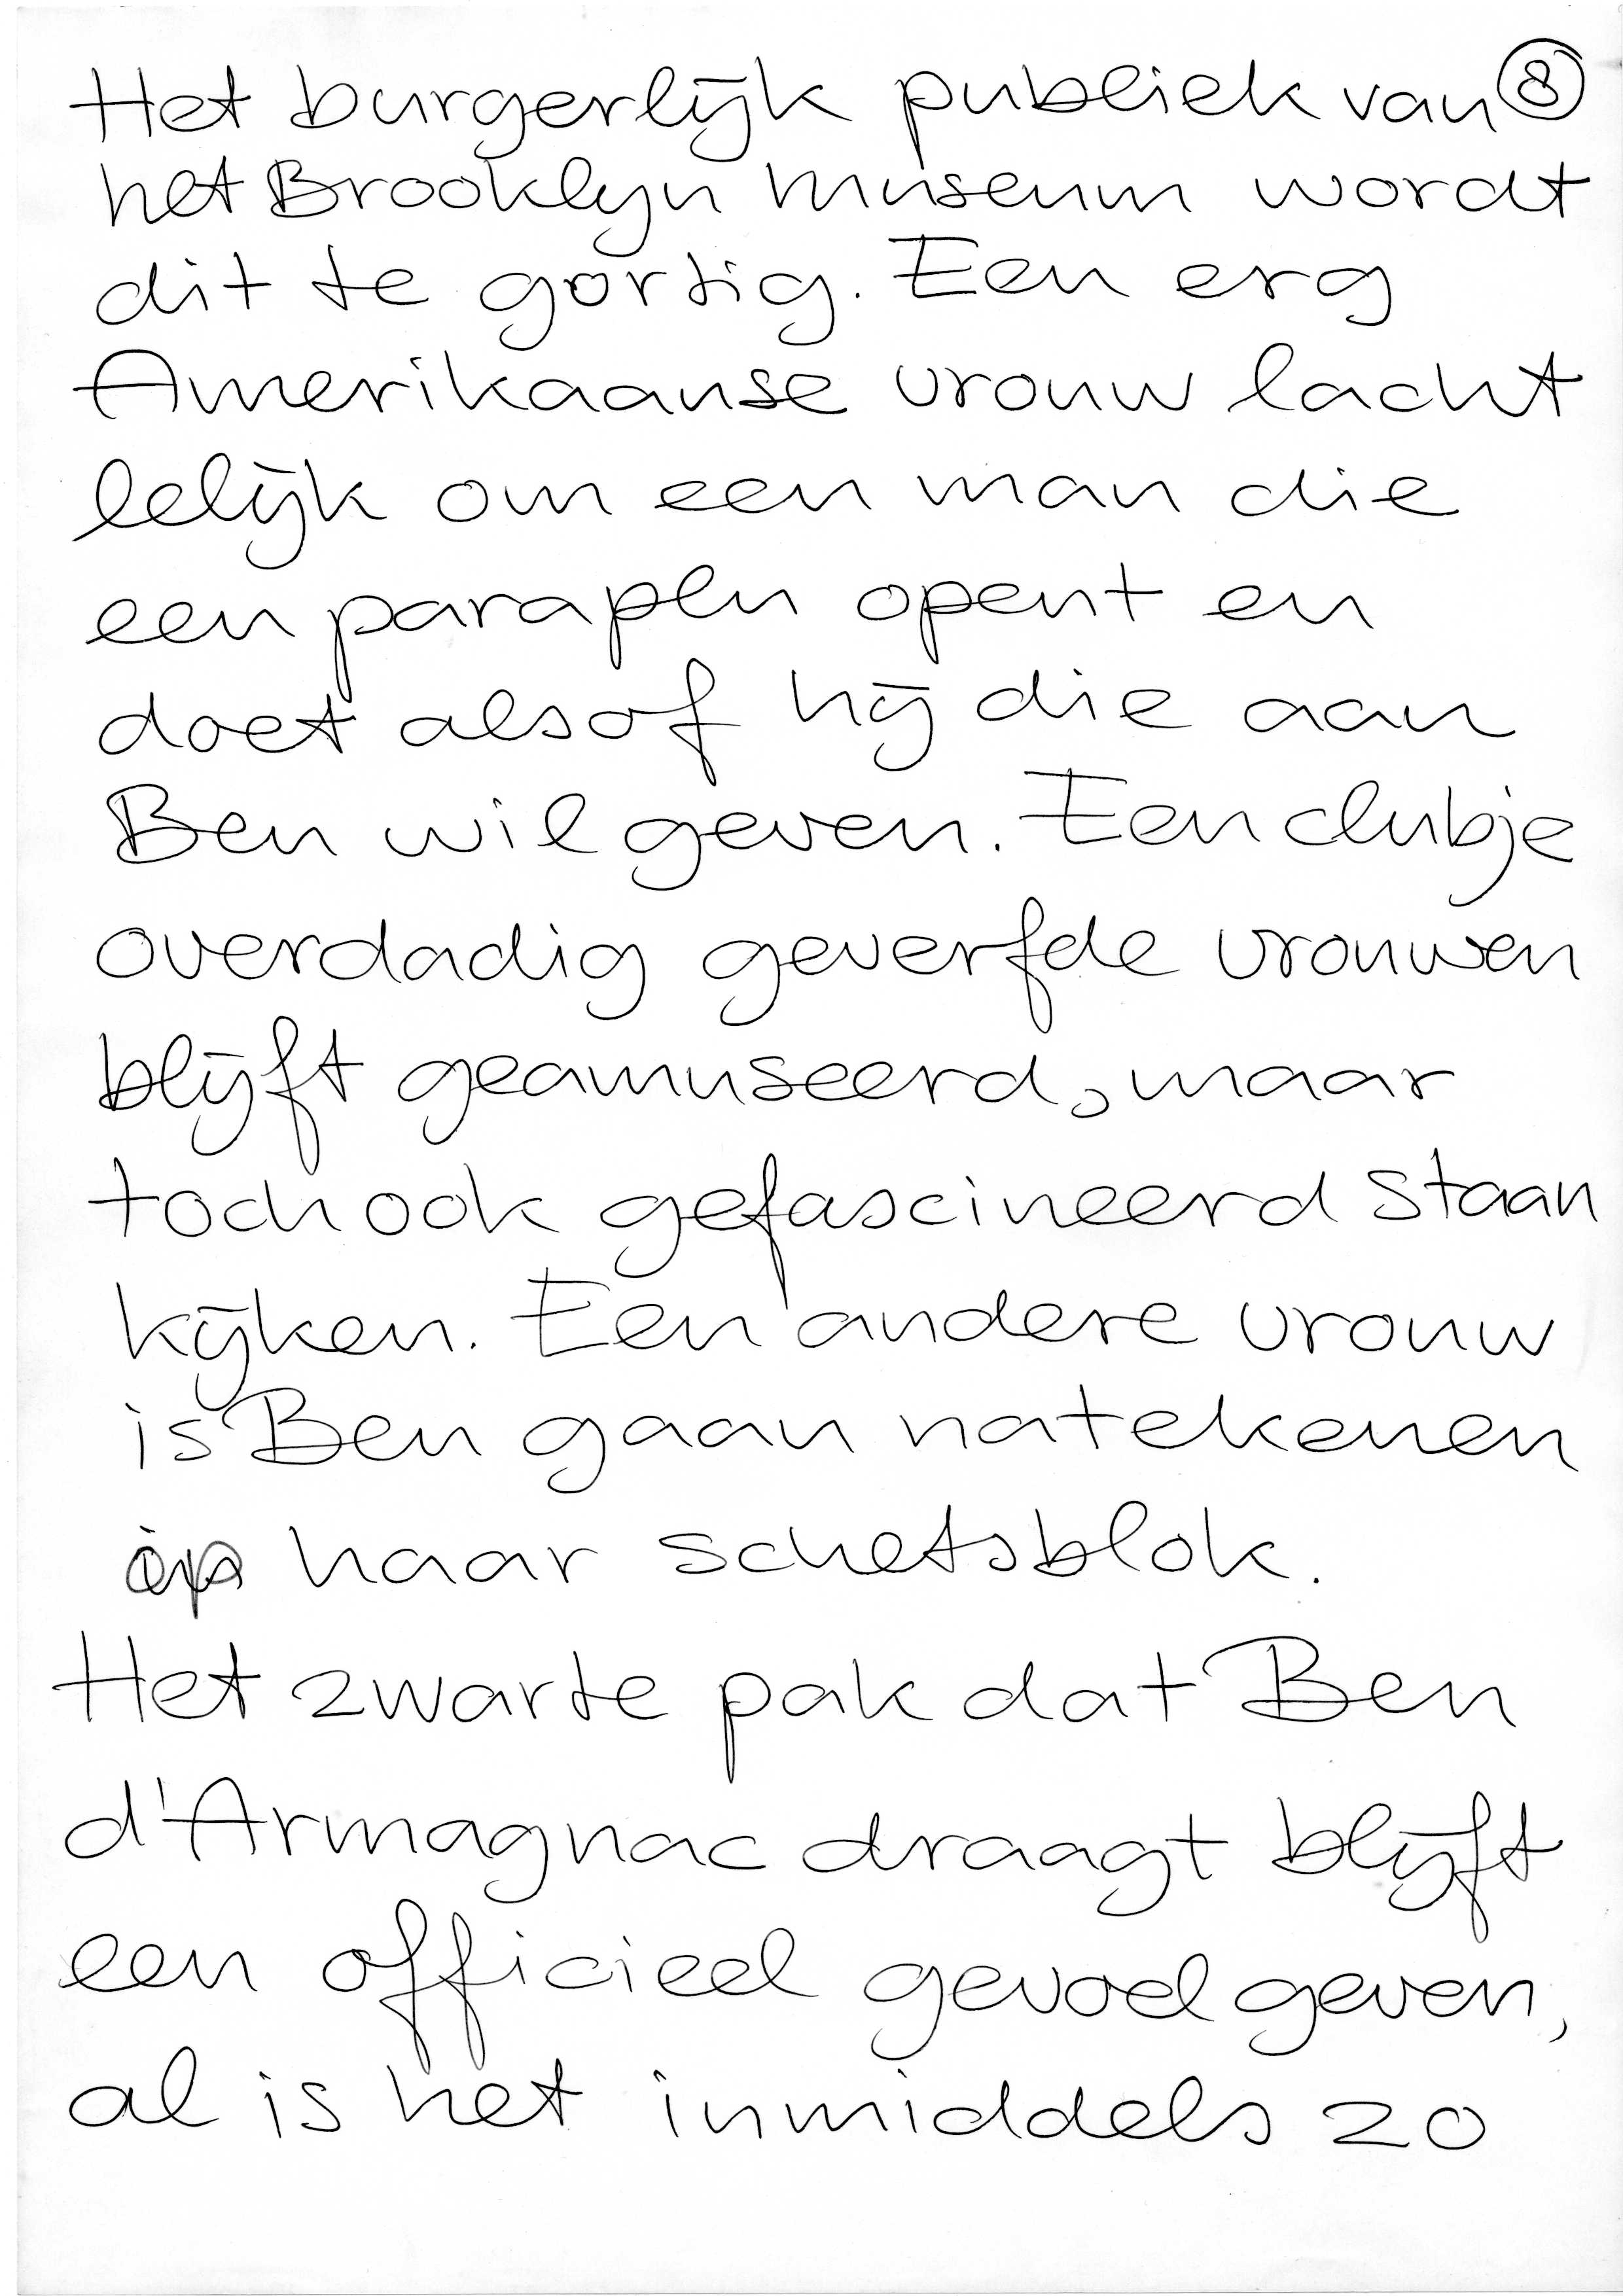 Het burgerlijk publiek van ⑧
het Brooklyn museum wordt
dit te gortig. Een erg
Amerikaanse vrouw lacht
lelijk om een man die
een paraplu opent en
doet alsof hij die aan
Ben wil geven. Een clubje
overdadig geverfde vrouwen
blijft geamuseerd, maar
toch ook gefascineerd staan
kijken. Een andere vrouw
is Ben gaan natekenen
op haar schetsblok.
Het zwarte pak dat Ben
d'Armagnac draagt blijft
een officieel gevoel geven,
al is het inmiddels zo